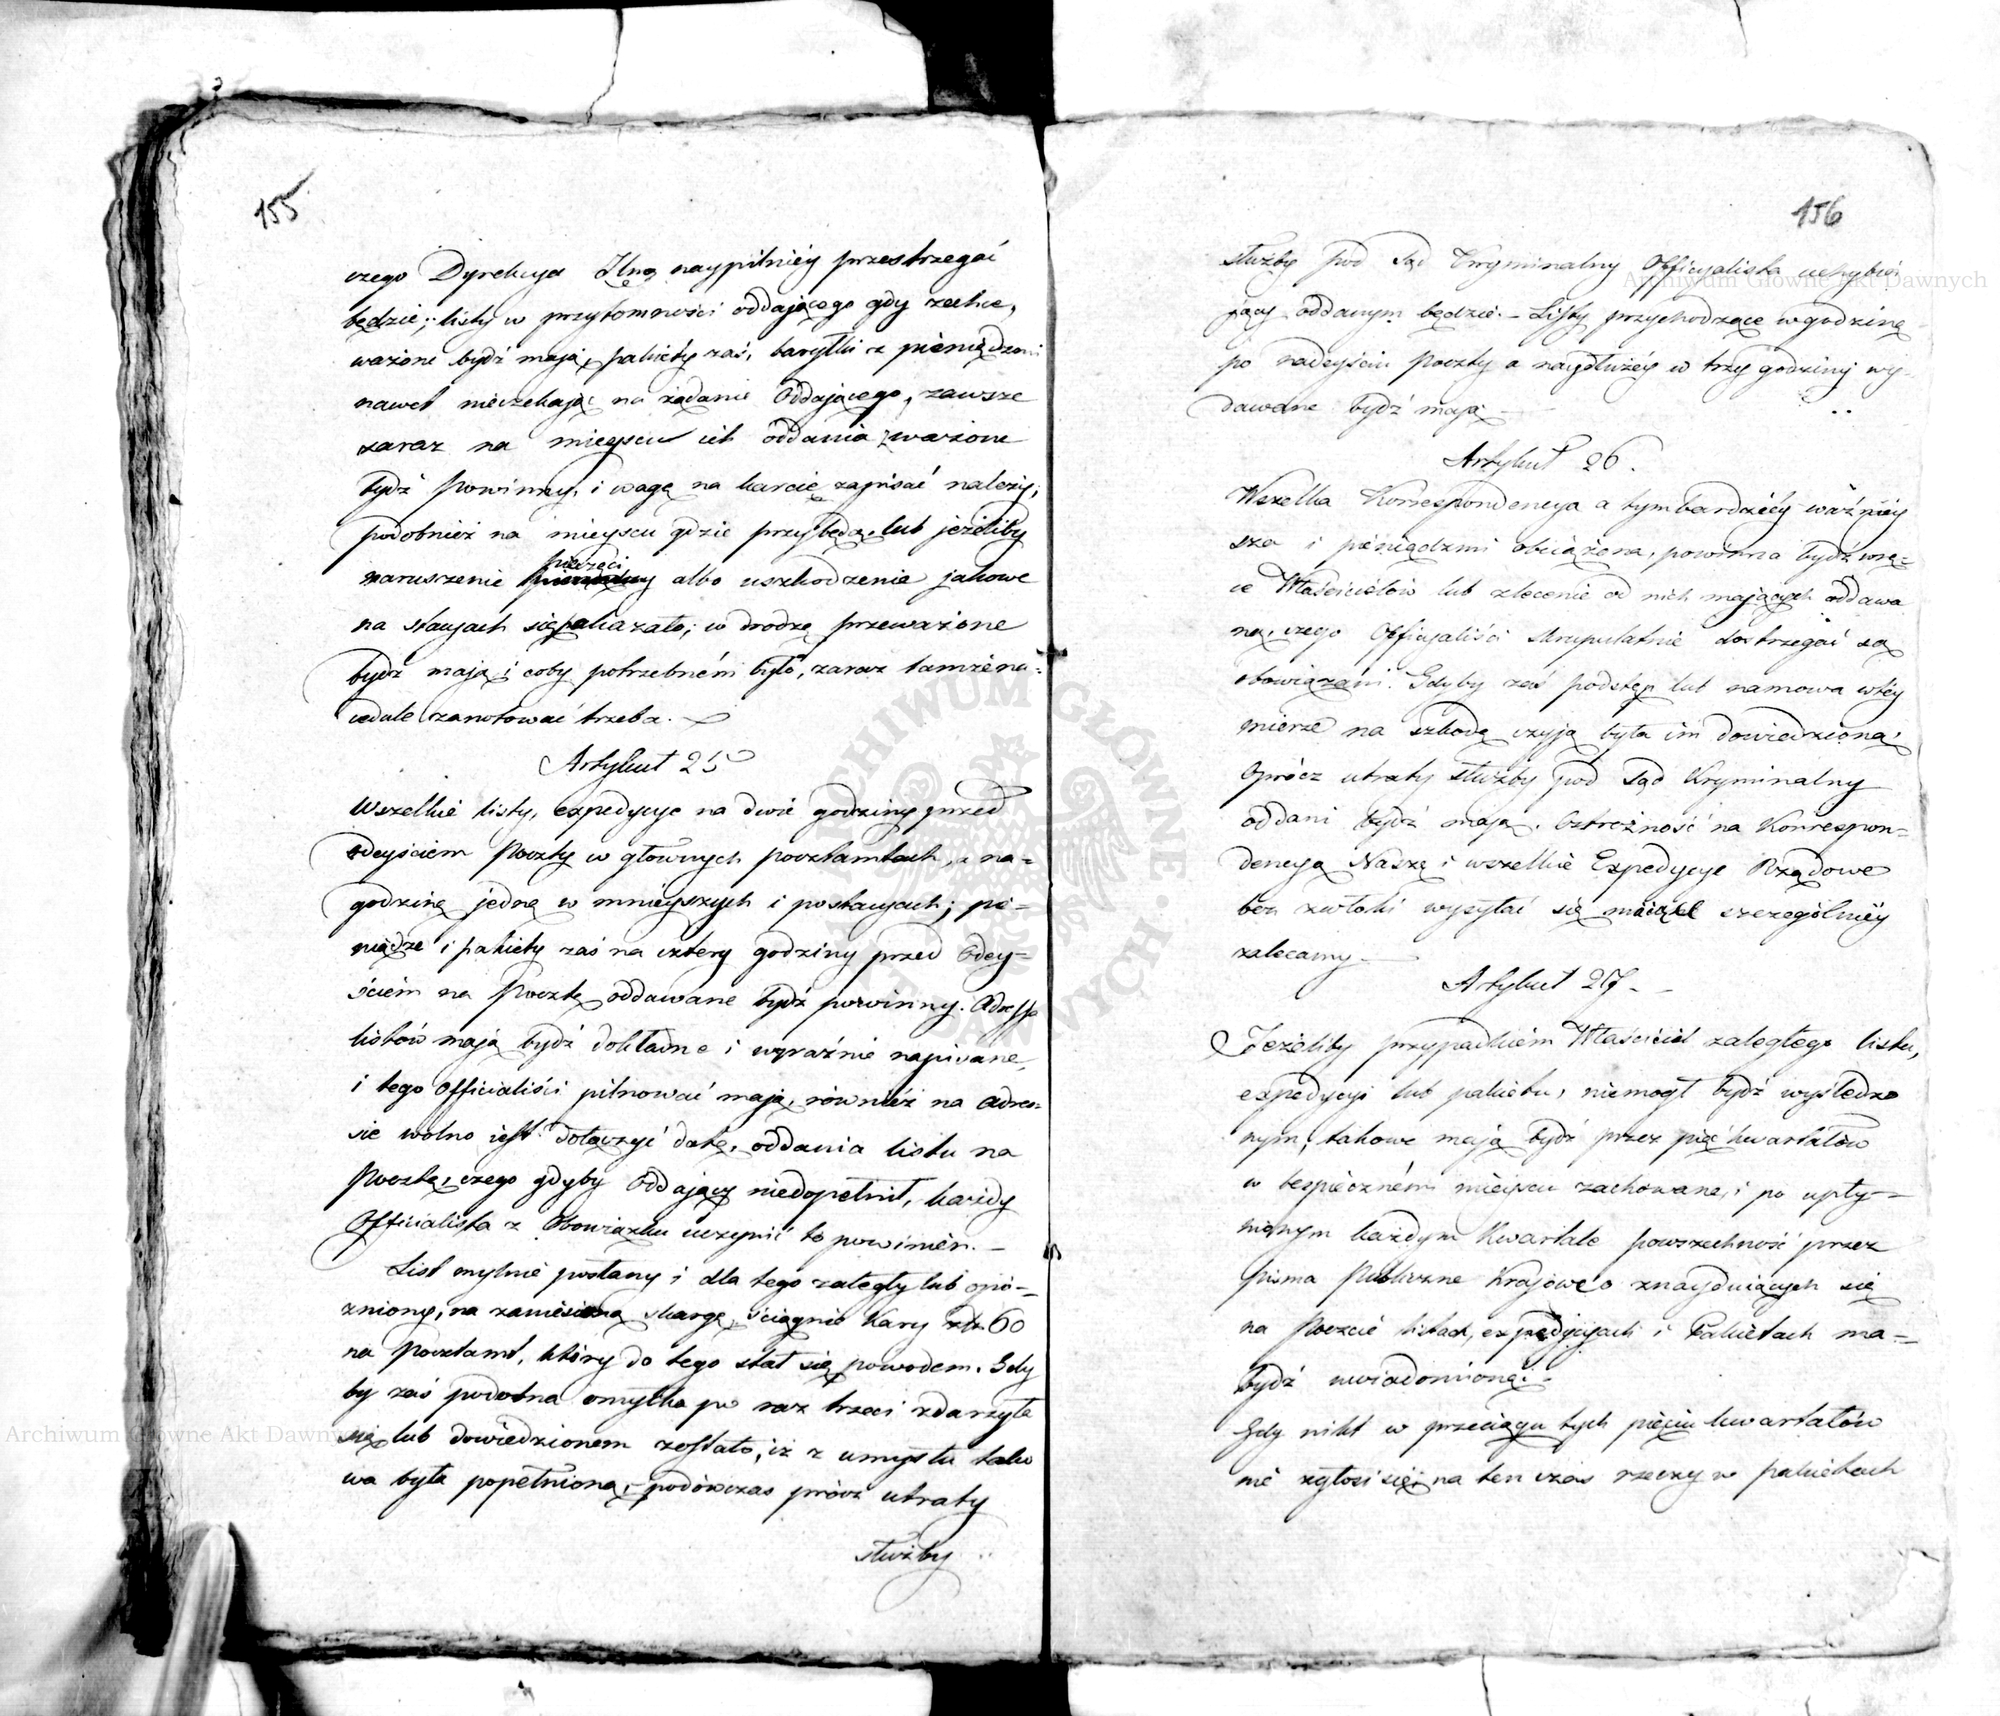 155
czego Dyrekcya Jlną naypilniéy przestrzegać
będzie; listy w przytomności oddającego gdy zechce,
ważone bydź mają, pakiety zaś, baryłki z pieniądzmi
nawet nieczekając na żądanie Oddającego, zawsze
zaraz na mieyscu ich oddania zważone
bydź powinny, i wagę na karcie zapisać należy;
podobnież na mieyscu gdzie przybędą, lub jeżeliby
naruszenie pieczęci albo uszkodzenie jakowe
na stacyach się pokazało; w drodze przeważone
bydź mają i coby potrzebném było, zaraz tamże na
cedule zanotować trzeba.
Artykuł 25
Wszelkie listy, expedycye na dwie godziny przed
odeyściem Poczty w głownych pocztamtach, a na=
godzinę jedną w mnieyszych i postacyach; pie=
niądze i pakiety zaś na cztery godziny przed odey=
ściem na Pocztę oddawane bydź powinny. Adressa
listów mają bydź dokładne i wyraźnie napisane,
i tego Officialiści pilnować mają, również na adres=
sie wolno jest dołączyć datę, oddania listu na
Pocztę, czego gdyby Oddający niedopełnił, każdy
Officialista z Obowiązku uczynić to powinien.
List mylnie posłany i dla tego zaległy lub opó=
zniony, na zaniesioną skargę, ściągnie Kary złt. 60
na Pocztamt, który do tego stał się powodem. Gdy
by zaś podobna omyłka po raz trzeci zdarzyła
się lub dowiedzionem zostało, iż z umysłu tako
wa była popełniona, podówczas prócz utraty
służby
156
służby pod Sąd Kryminalny Officyalista uchybia
jący oddanym będzie. Listy przychodzące w godzinę
po nadeyściu Poczty a naydłużéy w trzy godziny wy=
dawane bydź mają
Artykuł 26.
Wszelka Korrespondencya a tymbardziéy ważniéy
sza i pieniądzmi obciążona, powinna bydź w rę=
ce Właścicielów lub zlecenie od nich mających oddawa
na, czego Officyaliści skrupulatnie dostrzegać są
obowiązani. Gdyby zaś podstęp lub namowa w téy
mierze na szkodę czyją była im dowiedziona,
Oprócz utraty służby pod Sąd Kryminalny
oddani bydź mają. Ostrożność na Korrespon=
dencyą Naszą i wszelkie Expedycye Rządowe
bez zwłoki wysyłać się mające szczególniéy
zalecamy
Artykuł 27.
Jeżeliby przypadkiem Właściciel zaległego listu,
expedycyi lub pakietu, niemogł bydź wyśledzo
nym, takowe mają bydź przez pięć kwartałów
w bezpieczném mieyscu zachowane, i po upły=
nionym każdym Kwartale powszechność przez
pisma Publiczne Krajowe o znayduiących się
na Poczcie listach, expedycyach i Pakietach ma=
bydź uwiadomioną.
Gdy nikt w przeciągu tych pięciu kwartałów
nie zgłosi się, na ten czas rzeczy w pakietach